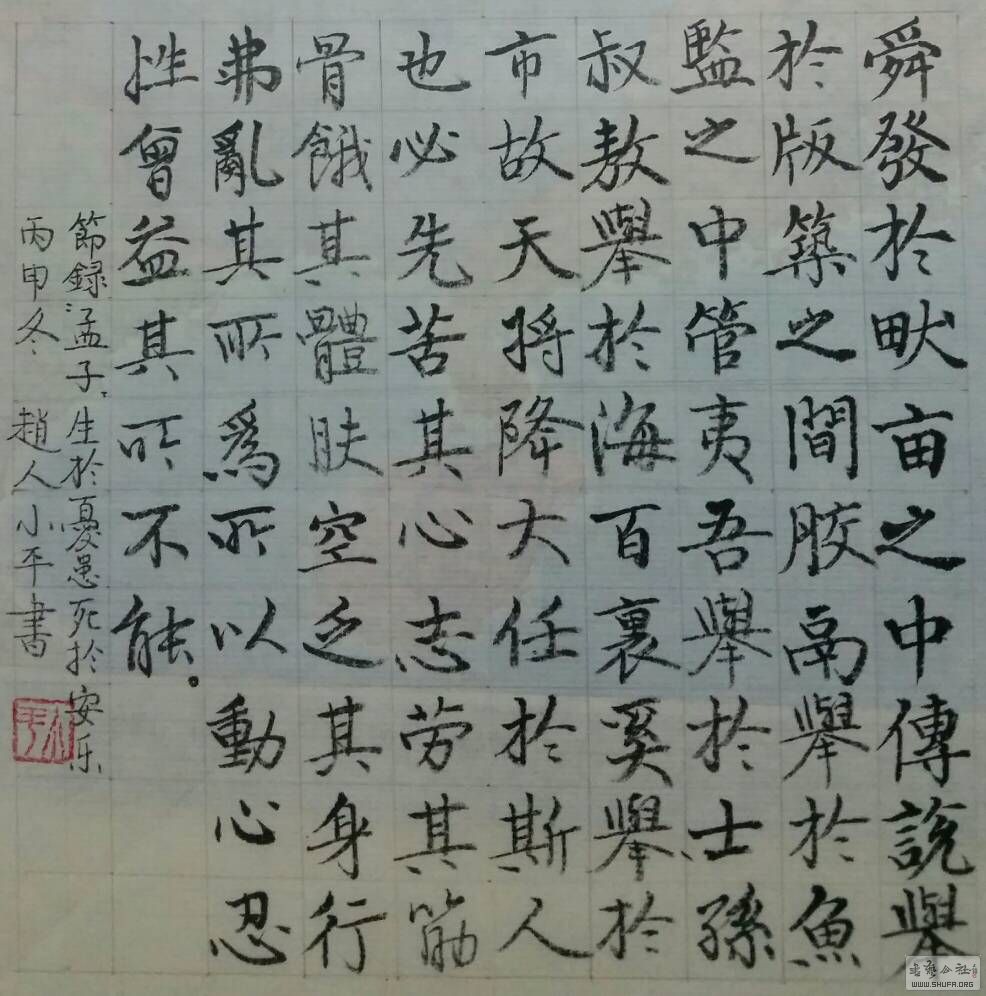 舜發於畎亩之中傳說舉
於版築之間胶鬲舉於魚
監之中管夷吾舉於士孫
叔敖舉於海百裏奚舉於
市故天将降大任於斯人
也必先苦其心志劳其筋
骨餓其體肤空乏其身行
弗亂其所爲所以動心忍
性曾益其所不能。
節録孟子生於憂患死於安乐
丙申冬 趙人小平書
书艺公社
WWW.SHUFA.ORG